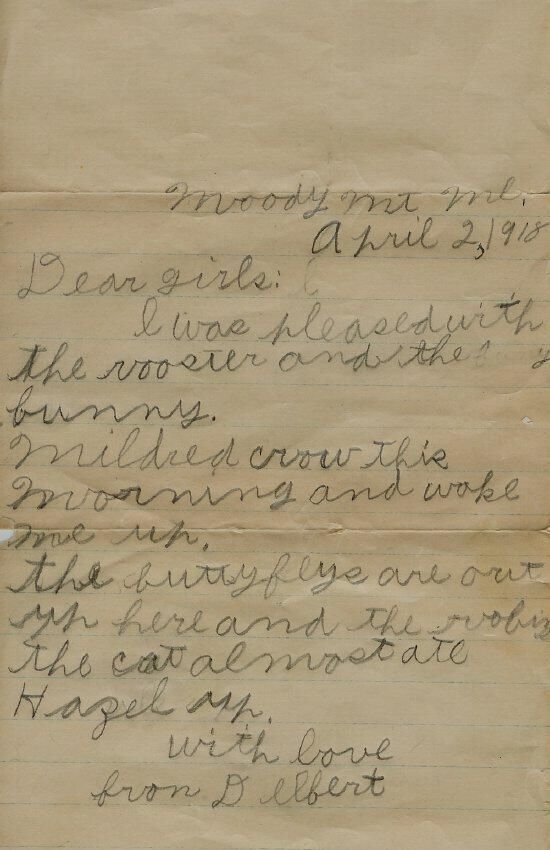 Moody Mt Me.
April 2, 1918
Dear girls:
I was pleased with
the rooster and the
bunny.
Mildred crow this
morning and woke
me up.
the buttyflys are out
up here and the robin
the cat almost ate
Hazel up.
with love
fron Delbert